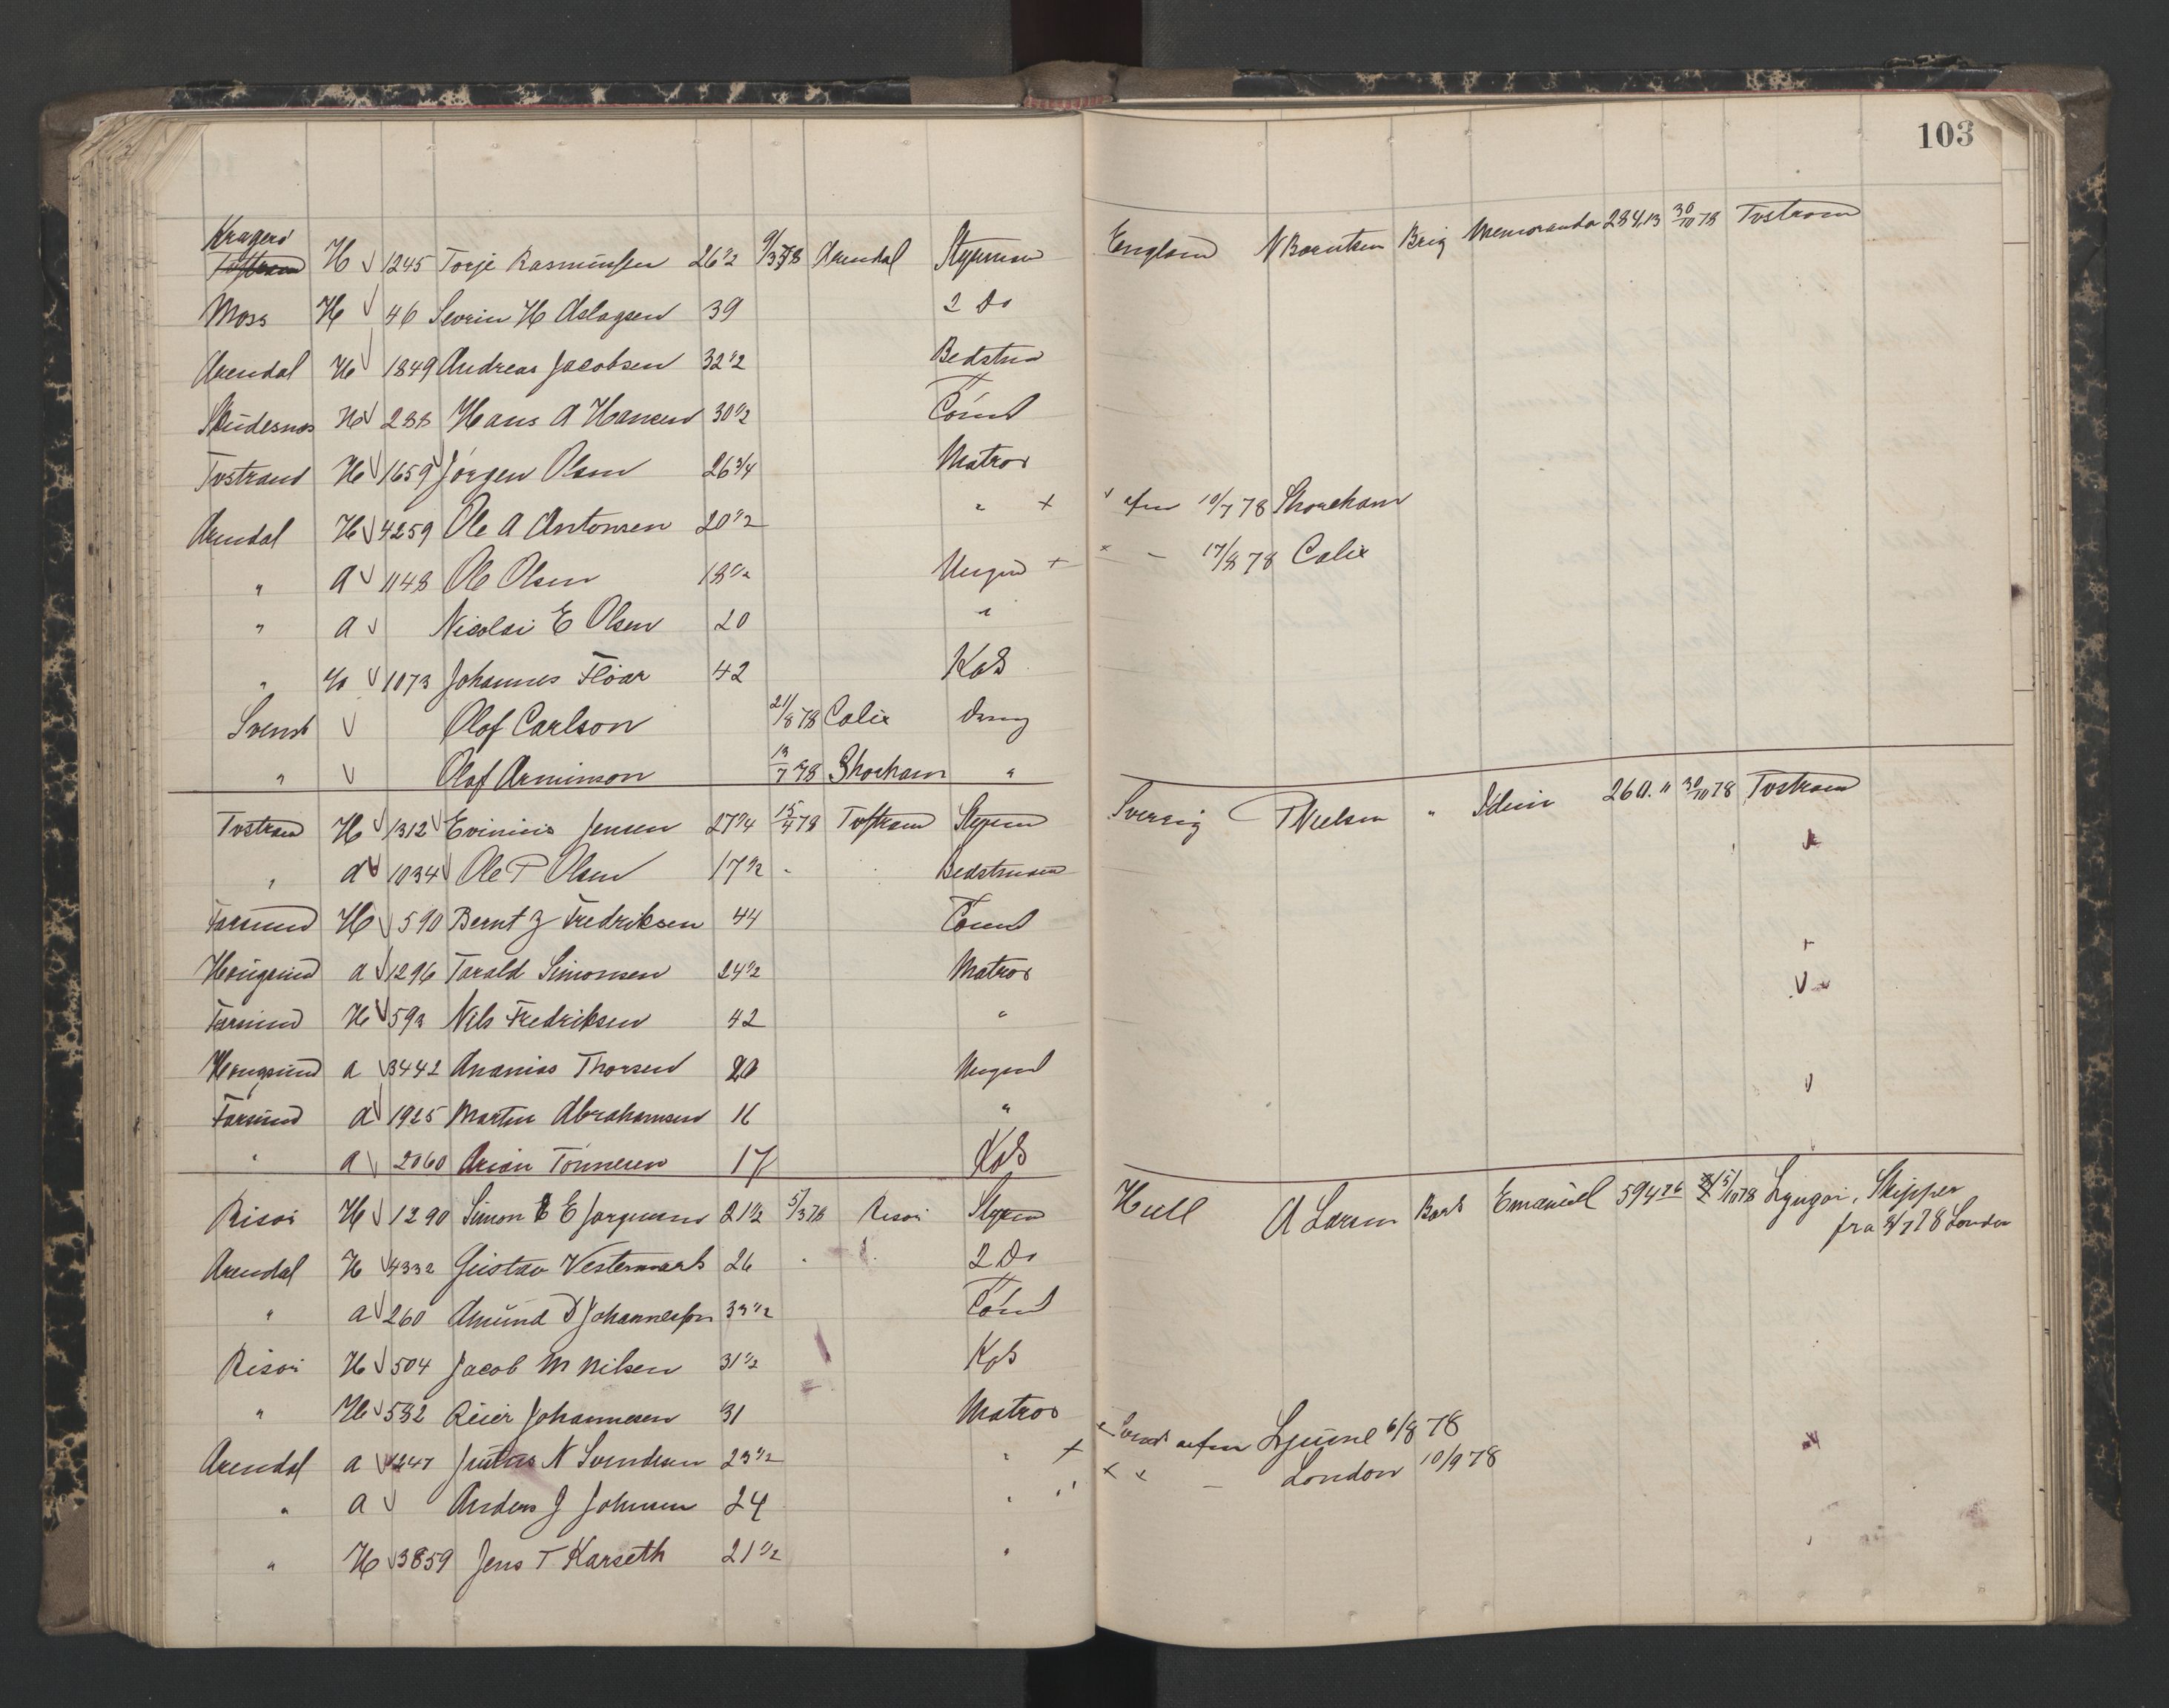 103
Kragerö
Tvedestrand H 1245 Torje Rasmussen 26 1/2 9/3 78 Arendal Styrmand England N Berntsen Brig Memoranda 284,13 30/10 78 Tvstrand
Moss H 46 Sevrin H Aslagsen 39 2 Do
Arendal H 1849 Andreas Jacobsen 32 1/2 Bedstmd
Skudesnes H 288 Hans A Hansen 30 1/2 Tömd
Tvstrand H 1659 Jörgen Olsen 26 3/4 Matros
Arendal H 4259 Ole A Antonsen 20 1/2 " + " afm 10/7 78 Shoreham
" a 1148 Ole Olsen 18 1/2 Ungmd + × — 17/8 78 Calix
" a Nicolai E Olsen 20 "
" H 1073 Johannes Flöar 42 Kok
Svensk Olof Carlson 21/8 78 Calix Dreng
" Olaf Arminson 13/7 78 Shorham "
Tvstrand H 1312 Jensen 27 1/4 15/4 78 Tvstrand Styrmd Sverrig T Nielsen " 260." 30/10 78 Tvstrand
" a 1034 Ole T Olsen 17 1/2 Bedstmand
Farsund H 590 Bernt Z Fredriksen 44 Tömd
Haugsund a 1296 Tarald Simonsen 24 1/2 Matros
Farsund H 593 Nils Fredriksen 42 "
Haugsund a 3442 Ananias Thorsen 20 Ungmd
Farsund a 1925 Martin Abrahamsen 16 "
" a 2060 Arian Tönnesen 17 Kok
Risör H 1290 Simon E Jörgensen 21 1/2 5/3 78 Risör Styrmd Hull A Larsen Bark Emanuel 594 76 5/10 78 Lyngör, Skipper
fra 8/7 78 London
Arendal H 4332 Gustav Vestermark 26 2 Do
" a 260 Amund D Johannesson 33 1/2 Tömd
Risör H 504 Jacob M Nilsen 31 1/2 Kok
" H 532 Reier Johannesen 31 Matros
Arendal a 1247 Justus N Svendsen 23 1/2 " + afm Ljusne 6/8 78
" a Anders J Johnsen 24 " × × — London 10/9 78
" H 3859 Jens T Karseth 21 1/2 "